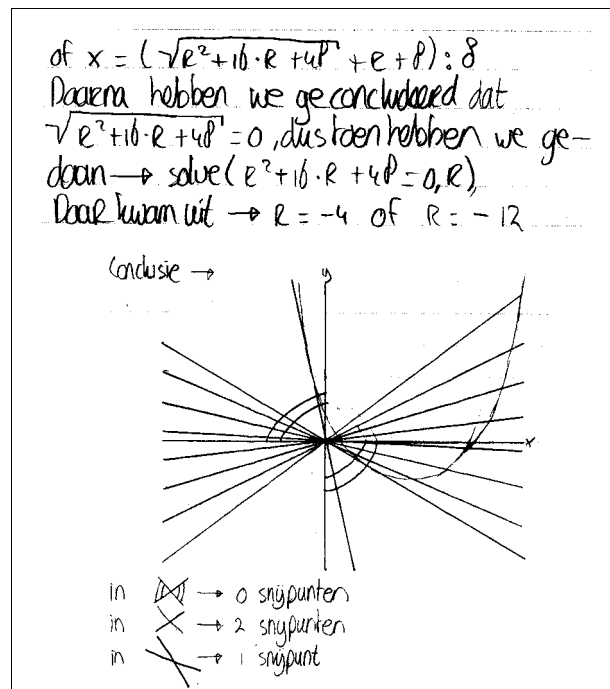 of x = (√R²+16·R+48 + R+8):8
Daarna hebben we geconcludeerd dat
√R²+16·R+48 =0, dus toen hebben we ge-
daan → solve(R²+16·R+48=0,R),
Daar kwam uit → R=-4 of R=-12
Conclusie →
y
x
in → 0 snijpunten
in → 2 snijpunten
in → 1 snijpunt